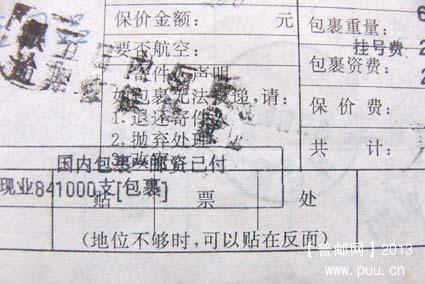 保价金额： 元 包裹重量：
要否航空： 挂号费
寄件人声明 包裹资费：
如包裹无法投递，请： 保价费：
1.退还寄件人
2.抛弃处理 共计：
3.改寄
国内包裹 邮资已付
现业841000支[包裹]
贴 票 处
（地位不够时，可以贴在反面）
【普邮网】2013
www.puu.cn